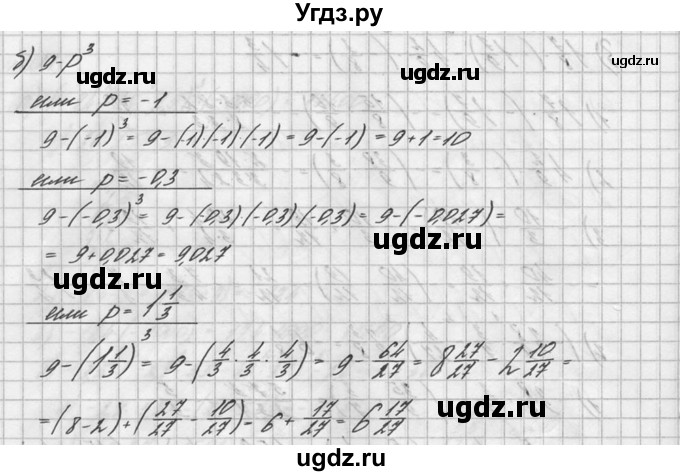 Угдз.ру
б) 9-p³
ugdz.ru ugdz.ru
или p = -1
9-(-1)³ = 9-(-1)(-1)(-1) = 9-(-1) = 9+1=10
или p = -0,3
9-(-0,3)³ = 9-(-0,3)(-0,3)(-0,3) = 9-(-0,027) =
ugdz.ru
= 9+0,027 = 9,027
ugdz.ru
или p = 1 1/3
9-(1 1/3)³ = 9-(4/3 · 4/3 · 4/3) = 9 - 64/27 = 8 27/27 - 2 10/27 =
ugdz.ru
= (8-2)+(27/27 - 10/27) = 6 + 17/27 = 6 17/27
ugdz.ru